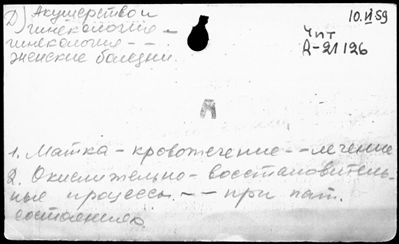 Д) Акушерство и
гинекология -
гинекология - -
женские болезни.
10.VI 59
Чпт
Д-21126
1. Матка - кровотечение - - лечение
2. Окислительно-восстановитель-
ные процессы. - - при пат.
состояниях